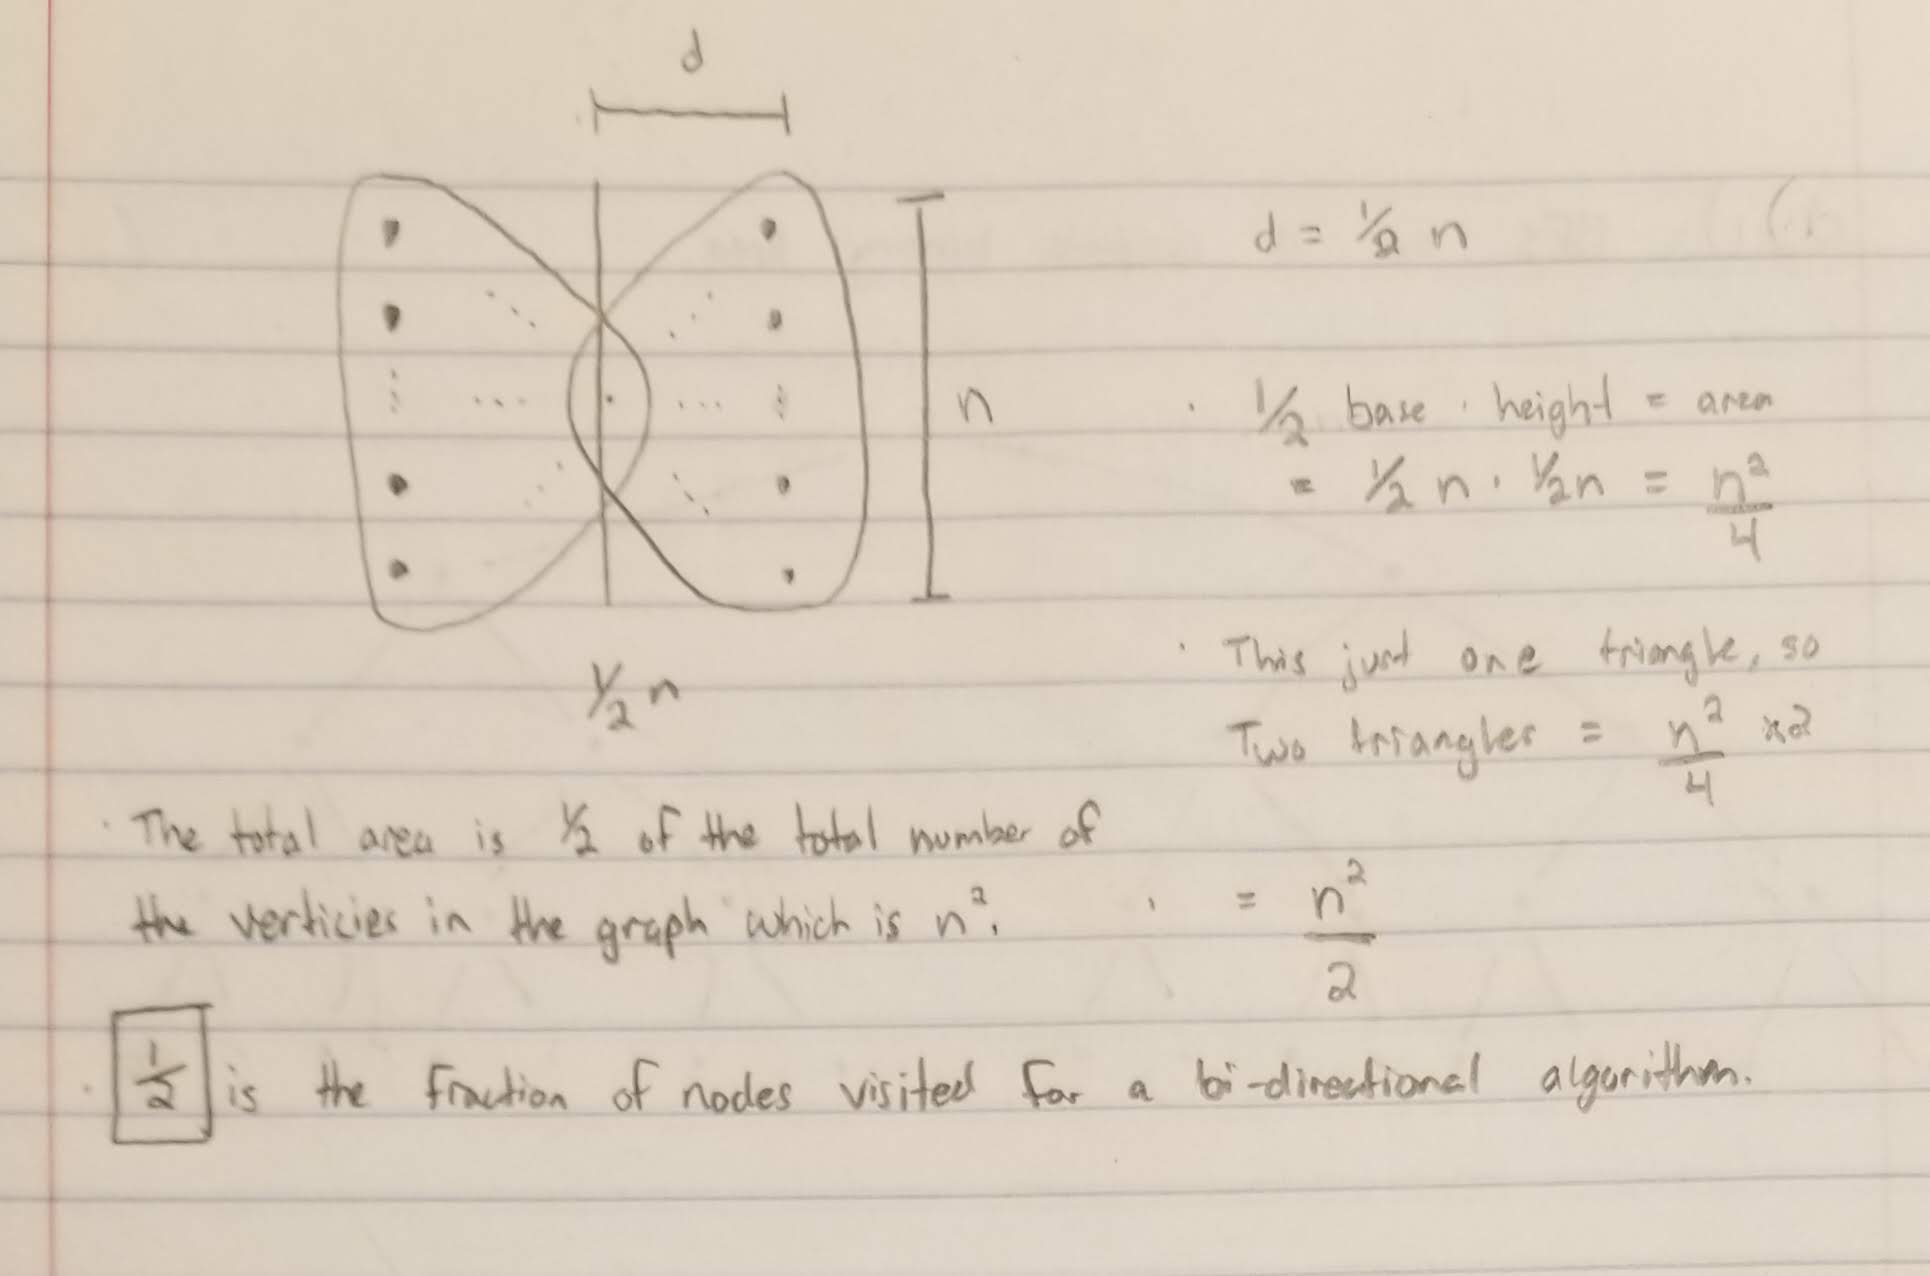 d
d = 1/2 n
n
· 1/2 base · height = area
= 1/2 n · 1/2 n = n²/4
1/2 n
· This just one triangle, so
Two triangles = n²/4 ×2
· The total area is 1/2 of the total number of
the verticies in the graph which is n².
· = n²/2
· 1/2 is the fraction of nodes visited for a bi-directional algorithm.